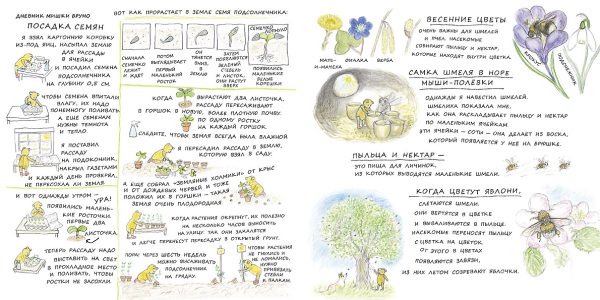 ДНЕВНИК МИШКИ БРУНО
ПОСАДКА СЕМЯН
Я ВЗЯЛ КАРТОННУЮ КОРОБКУ
ИЗ-ПОД ЯИЦ, НАСЫПАЛ ЗЕМЛЮ
ДЛЯ РАССАДЫ
В ЯЧЕЙКИ
И ПОСАДИЛ СЕМЕНА
ПОДСОЛНЕЧНИКА
НА ГЛУБИНУ 0,5 СМ.
ЧТОБЫ СЕМЕНА ВПИТАЛИ
ВЛАГУ, ИХ НАДО
ПОНЕМНОГУ ПОЛИВАТЬ.
А ЕЩЕ СЕМЕНАМ
НУЖНЫ ТЕМНОТА
И ТЕПЛО.
Я ПОСТАВИЛ
РАССАДУ
НА ПОДОКОННИК,
НАКРЫЛ ГАЗЕТАМИ
И КАЖДЫЙ ДЕНЬ ПРОВЕРЯЛ,
НЕ ПЕРЕСОХЛА ЛИ ЗЕМЛЯ.
И ВОТ ОДНАЖДЫ УТРОМ –
УРА!
ПОЯВИЛИСЬ МАЛЕНЬ-
КИЕ РОСТОЧКИ.
ПЕРВЫЕ ДВА
ЛИСТОЧКА.
ТЕПЕРЬ РАССАДУ НАДО
ВЫСТАВИТЬ НА СВЕТ
В ПРОХЛАДНОЕ МЕСТО
И ПОЛИВАТЬ, ЧТОБЫ
РОСТКИ НЕ ЗАСОХЛИ.
ВОТ КАК ПРОРАСТАЕТ В ЗЕМЛЕ СЕМЯ ПОДСОЛНЕЧНИКА:
СЕМЕЧКО
ЛОПНУЛО
СНАЧАЛА
СЕМЕЧКО
ЛЕЖИТ
И ЖДЕТ
ПОТОМ
ВЫГЛЯДЫВАЕТ
ПЕРВЫЙ
МАЛЕНЬКИЙ
РОСТОК.
ОН
ТЯНЕТСЯ
ВНИЗ,
В
ЗЕМЛЮ
ЗАТЕМ
ПОЯВЛЯЮТСЯ
ЗЕЛЕНЫЙ
СТЕБЕЛЕК
И ЛИСТОК,
ОНИ РАСТУТ
ВВЕРХ
ПОЯВИЛИСЬ
МАЛЕНЬКИЕ
БЕЛЫЕ
КОРЕШКИ
КОГДА
ВЫРАСТАЮТ ДВА ЛИСТОЧКА,
РАССАДУ ПЕРЕСАЖИВАЮТ
В ГОРШОК, В НОВУЮ, БОЛЕЕ ПЛОТНУЮ ПОЧВУ.
ПО ОДНОМУ РОСТКУ
НА КАЖДЫЙ ГОРШОК.
СЛЕДИТЕ, ЧТОБЫ ЗЕМЛЯ ВСЕГДА БЫЛА ВЛАЖНОЙ.
Я ПЕРЕСАДИЛ РАССАДУ В ЗЕМЛЮ,
КОТОРУЮ ВЗЯЛ В САДУ.
А ЕЩЕ СОБРАЛ «ЗЕМЛЯНЫЕ ХОЛМИКИ» ОТ КРЫС
И ОТ ДОЖДЕВЫХ ЧЕРВЕЙ И ТОЖЕ
ПОЛОЖИЛ ИХ В ГОРШКИ – ТАКАЯ
ЗЕМЛЯ ОЧЕНЬ ПЛОДОРОДНАЯ.
КОГДА РАСТЕНИЯ ОКРЕПНУТ, ИХ ПОЛЕЗНО
НА НЕСКОЛЬКО ЧАСОВ ВЫНОСИТЬ
НА УЛИЦУ. ТАК ОНИ ЗАКАЛЯЮТСЯ
И ЛЕГЧЕ ПЕРЕНЕСУТ ПЕРЕСАДКУ В ОТКРЫТЫЙ ГРУНТ.
ПОРА! ЧЕРЕЗ ШЕСТЬ НЕДЕЛЬ
МОЖНО ВЫСАЖИВАТЬ
ПОДСОЛНЕЧНИК
НА ГРЯДКУ.
ЧТОБЫ РАСТЕНИЯ
НЕ ГНУЛИСЬ И
НЕ ЛОМАЛИСЬ,
НУЖНО
ПРИВЯЗАТЬ
СТЕБЛИ
К ПАЛКАМ.
МАТЬ-
И-МАЧЕХА
ФИАЛКА
ВЕРБА
ВЕСЕННИЕ ЦВЕТЫ
ОЧЕНЬ ВАЖНЫ ДЛЯ ШМЕЛЕЙ
И ПЧЕЛ. НАСЕКОМЫЕ
СОБИРАЮТ ПЫЛЬЦУ И НЕКТАР,
КОТОРЫЕ НАХОДЯТ ВНУТРИ ЦВЕТКА.
КРОКУС
ПОДСНЕЖНИК
САМКА ШМЕЛЯ В НОРЕ
МЫШИ-ПОЛЁВКИ
ОДНАЖДЫ Я НАВЕСТИЛ ШМЕЛЕЙ.
ШМЕЛИХА ПОКАЗАЛА МНЕ,
КАК ОНА РАСКЛАДЫВАЕТ ПЫЛЬЦУ И НЕКТАР
ПО МАЛЕНЬКИМ ЯЧЕЙКАМ.
ЭТИ ЯЧЕЙКИ – СОТЫ – ОНА ДЕЛАЕТ ИЗ ВОСКА,
КОТОРЫЙ ПОЯВЛЯЕТСЯ У НЕЕ НА БРЮШКЕ.
ПЫЛЬЦА И НЕКТАР –
ЭТО ПИЩА ДЛЯ ЛИЧИНОК,
ИЗ КОТОРЫХ ВЫВОДЯТСЯ МАЛЕНЬКИЕ ШМЕЛИ.
КОГДА ЦВЕТУТ ЯБЛОНИ,
СЛЕТАЮТСЯ ШМЕЛИ.
ОНИ ВЕРТЯТСЯ В ЦВЕТКЕ
И ВЫВАЛИВАЮТСЯ В ПЫЛЬЦЕ.
НАСЕКОМЫЕ ПЕРЕНОСЯТ ПЫЛЬЦУ
С ЦВЕТКА НА ЦВЕТОК.
ОТ ЭТОГО В ЦВЕТКЕ
ПОЯВЛЯЮТСЯ ЗАВЯЗИ,
ИЗ НИХ ЛЕТОМ СОЗРЕВАЮТ ЯБЛОЧКИ.